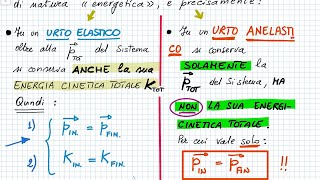 di natura «energetica», e precisamente:
• In un URTO ELASTICO
oltre alla p⃗ TOT del Sistema
si conserva ANCHE la sua
ENERGIA CINETICA TOTALE K TOT
Quindi :
1) p⃗ IN. = p⃗ FIN.
2) K IN. = K FIN.
• In un URTO ANELASTI
CO si conserva
SOLAMENTE la
p⃗ TOT del Sistema, MA
NON LA SUA ENERGI-
CINETICA TOTALE.
Per cui vale solo:
p⃗ IN = p⃗ FIN !!